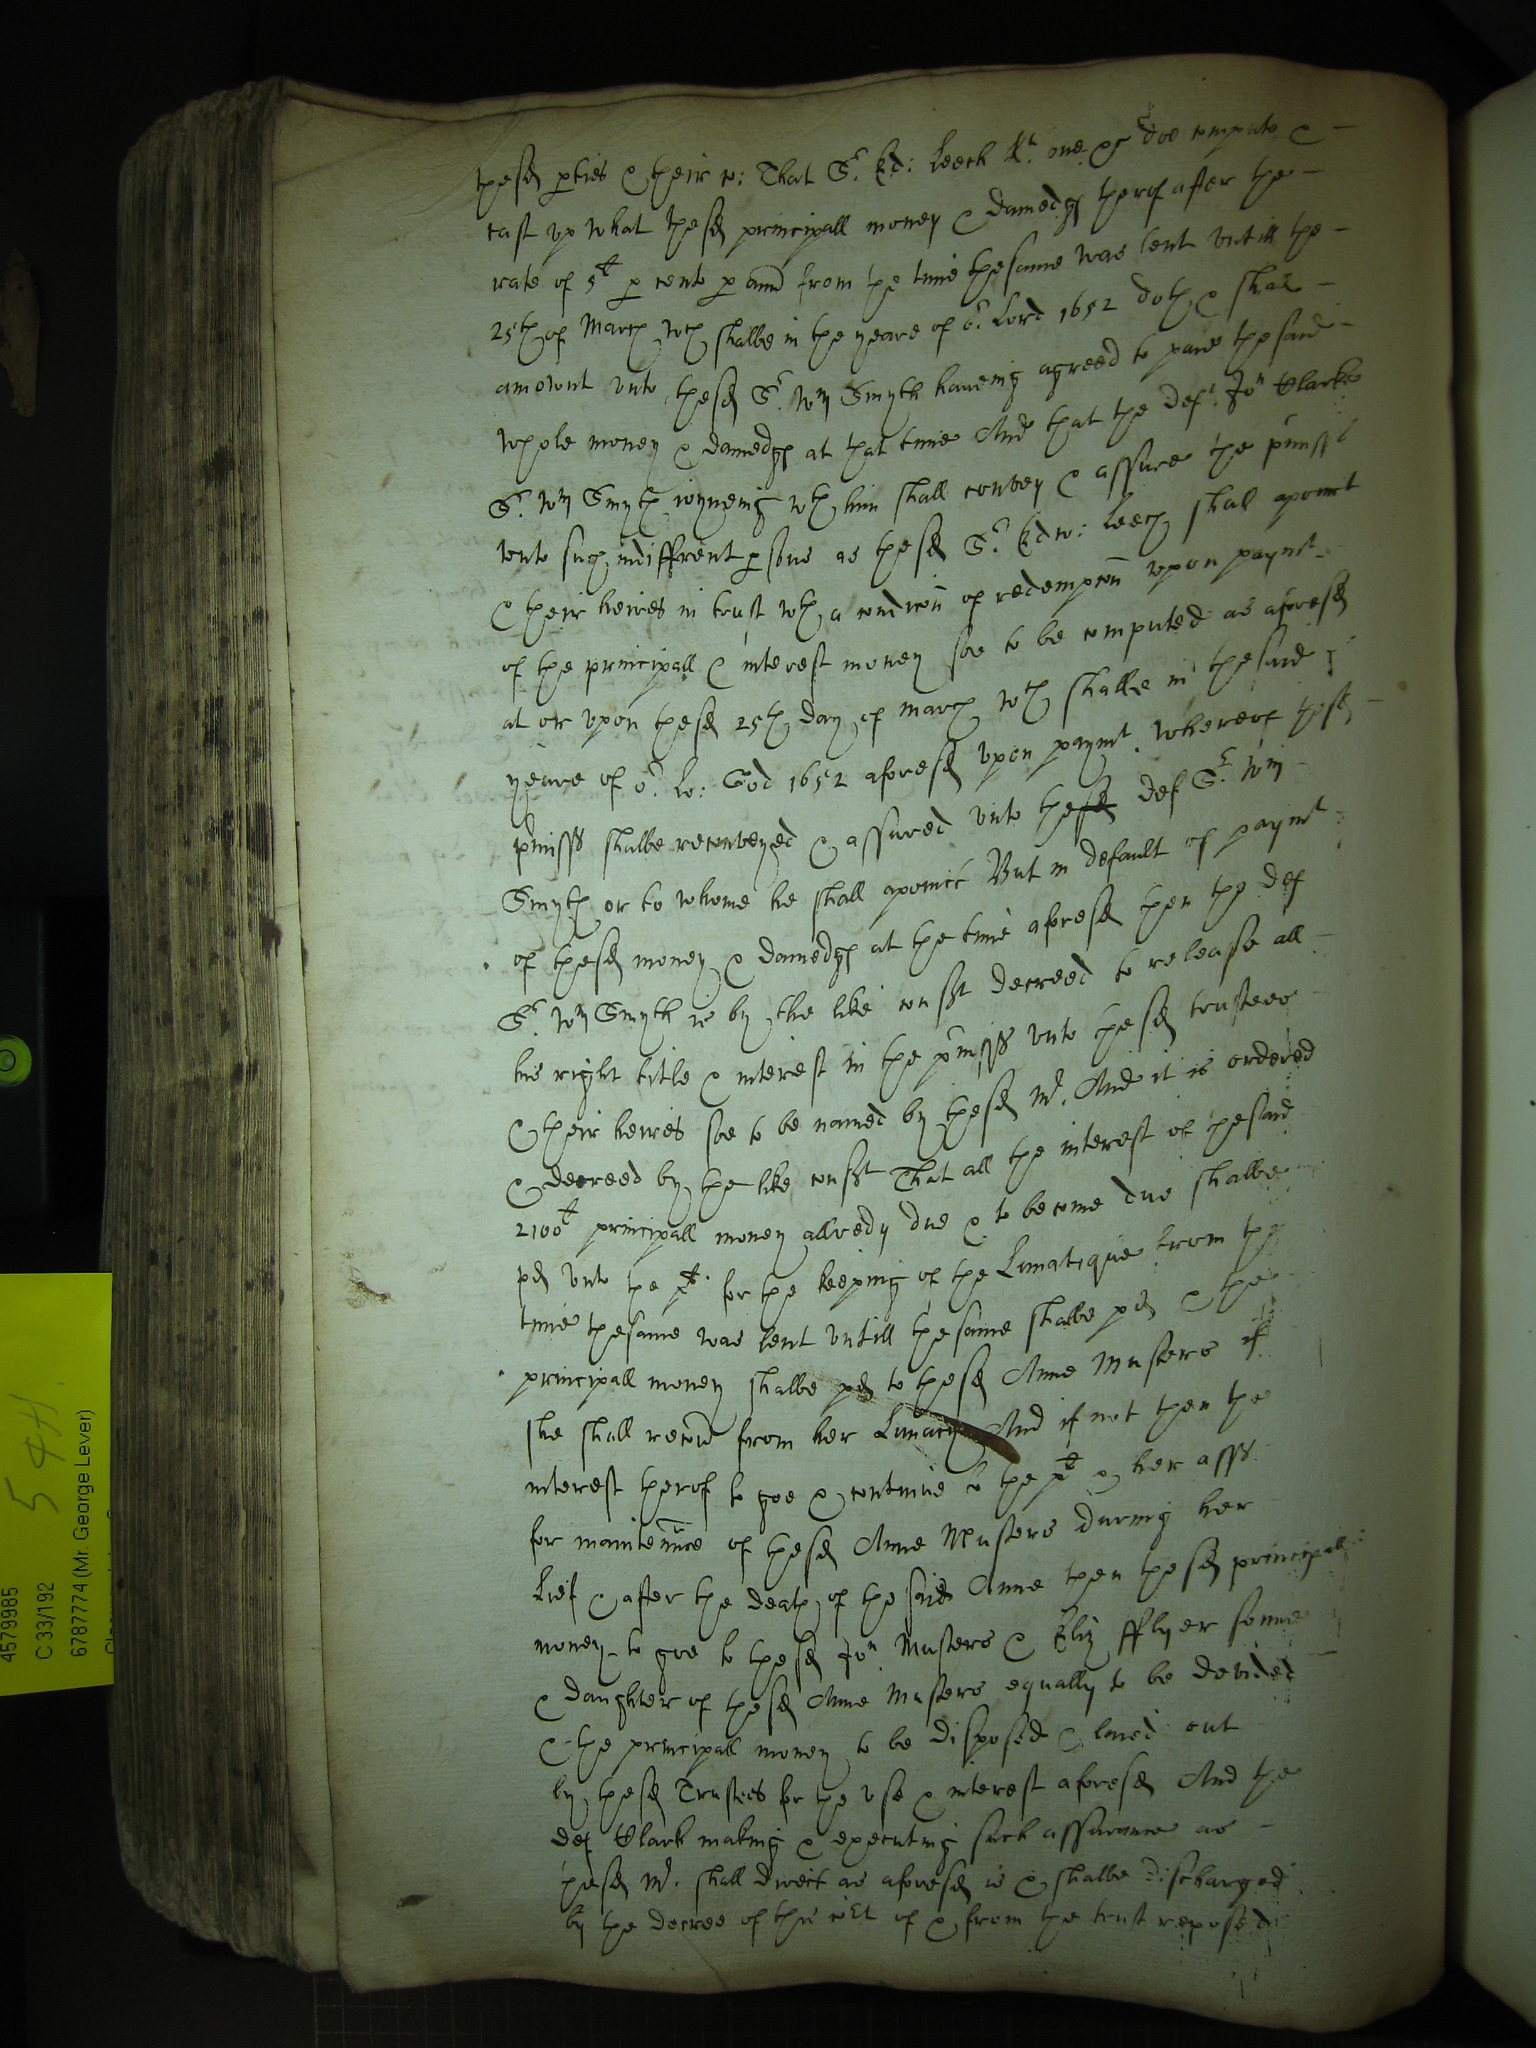 thesd pties & their co: That Sr. Ed: Leech kt. one &c doe compute &
cast up what thesd principall money & damedgs therof after the
rate of 5l p cento p annū from the time thesame was lent untill the
25th of March wch shalbe in the yeare of or. Lord 1652 doth & shall
amount unto, thesd Sr. Wm Smyth haveing agreed to paie thesaid
whole money & damedgs at that time And that the deft. Jon Clarke
Sr. Wm Smyth joyneing wth him shall convey & assure the pmiss
unto such indiffrent psons as thesd Sr. Edw: Leech shall apoint
& their heires in trust wth a condicōn of redempcōn upon paymt.
of the principall & interest money soe to be computed as aforesd
at or upon thesd 25th day of March wch shalbe in thesaid
yeare of or. Lo: God 1652 aforesd upon paymt. whereof thesd
pmisss shalbe reconveyed & assured unto thesd def Sr. Wm
Smyth or to whome he shall apoint But in default of paymt
of thesd money & damedgs at the time aforesd then the def
Sr. Wm Smyth is by the like consent decreed to release all
his right title & interest in the pmisss unto thesd trustees
& their heires soe to be named by thesd Mr. And it is ordered
& decreed by the like consent That all the interest of thesaid
2100l principall money allredy due & to become due shalbe
pd unto the plt. for the keeping of the Lunatique from the
time thesame was lent untill thesame shalbe pd & the
principall money shalbe pd to thesd Anne Masters if
she shall recovr from her Lunacy And if not then the
interest therof to goe & continue to the plt & her asss
for maintenñce of thesd Anne Masters during her
Lief & after the death of the said Anne then thesd principall
money to goe to thesd Jon Masters & Eliz fflyer sonne
& daughter of thesd Anne Masters equally to be devided
& the principall money to be disposed & laied out
by thesd Trustees for the use & interest aforesd And the
def Clark making & executing such assurance as
thesd Mr. shall direct as aforesd is & shalbe discharged
by the decree of this Cort of & from the trust reposed
4579985
C 33/192
6787774 (Mr. George Lever)
5 4H.